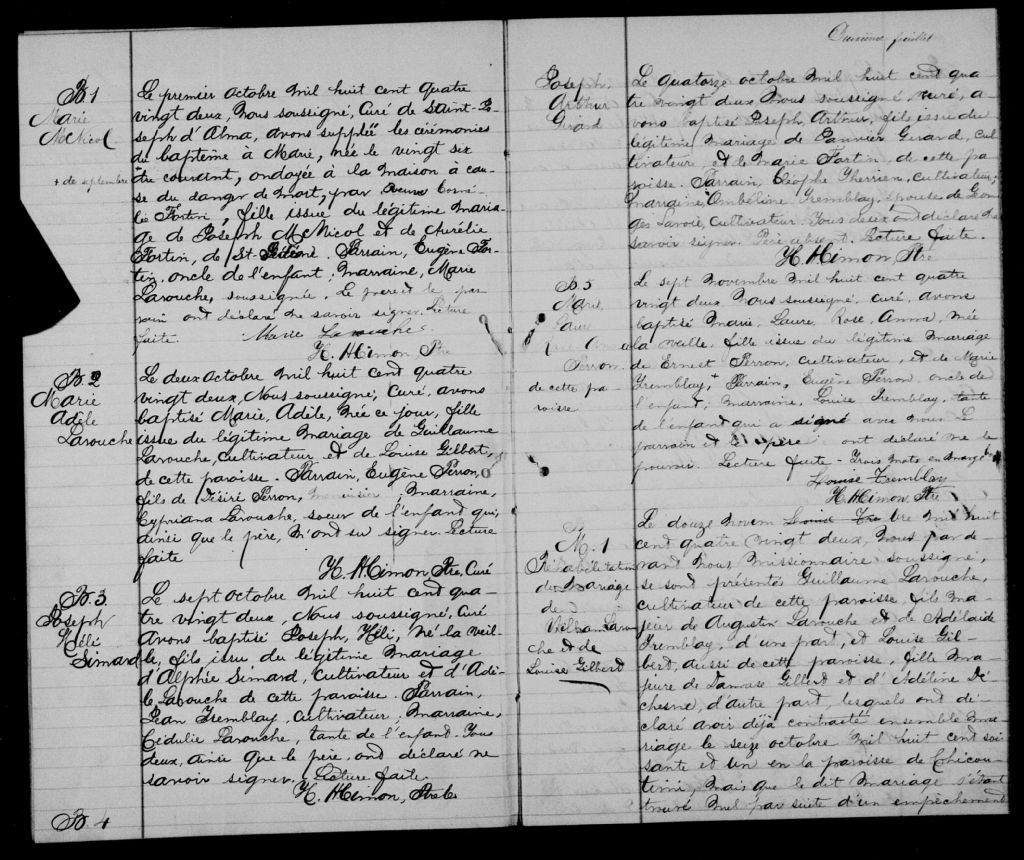 B.1
Marie
McNicol
+ de septembre
Le premier octobre mil huit cent quatre
vingt deux, Nous soussigné, Curé de Saint-Jo-
seph d'Alma, avons supplée les cérémonies
de baptême à Marie, née le vingt six
du courant, ondoyée à la maison à cau-
se du danger de mort, par Corné-
lie Fortin, fille issue du légitime maria-
ge de Joseph McNicol et de Aurélie
Fortin, de St-Gédéon. Parrain, Eugène For-
tin, oncle de l'enfant; Marraine, Marie
Larouche, soussignée. Le père et le par
rain ont déclaré ne savoir signer. Lecture
faite. Marie Larouche
H. Himon, Ptre
B.2
Marie
Adèle
Larouche
Le deux octobre mil huit cent quatre
vingt deux, Nous soussigné, Curé, avons
baptisé Marie, Adèle, née ce jour, fille
issue du légitime mariage de Guillaume
Larouche, cultivateur et de Louise Gilbert,
de cette paroisse. Parrain, Eugène Perron,
fils de Désiré Perron, menuisier; Marraine,
Cypriana Larouche, soeur de l'enfant qui,
ainsi que le père, n'ont su signer. Lecture
faite
H. Himon Ptre, Curé
B.3
Joseph
Héli
Simard
Le sept octobre mil huit cent qua-
tre vingt deux, Nous soussigné, Curé,
Avons baptisé Joseph, Héli, né la veil-
le, fils issu du légitime mariage
d'Alphée Simard, cultivateur et d'Adè-
le Larouche de cette paroisse. Parrain,
Jean Tremblay, cultivateur; Marraine,
Cédulie Larouche, tante de l'enfant. Tous
deux, ainsi que le père, ont déclaré ne
savoir signer. Lecture faite.
H. Himon, Ptre
B.4
feuillet
Joseph,
Arthur
Girard
Le quatorze octobre mil huit cent qua-
tre vingt deux Nous soussigné curé, a-
vons baptisé Joseph, Arthur, fils issu du
légitime mariage de Girard, cul-
tivateur, et de Marie Fortin, de cette pa-
roisse. Parrain, Cléophe Therrien, cultivateur;
marraine, Ombéline Tremblay, épouse de Geor-
ges Lavoie, cultivateur. Tous deux ont déclaré ne
savoir signer. Père absent. Lecture faite.
H. Himon, Ptre
B.5
Marie,
Laure
Rose Anna
Perron
de cette pa-
roisse
Le sept Novembre mil huit cent quatre
vingt deux Nous soussigné, Curé, avons
baptisé Marie, Laure, Rose, Anna, née
la veille, fille issue du légitime mariage
de Ernest Perron, cultivateur, et de Marie
Tremblay, + Parrain, Eugène Perron, oncle de
l'enfant; marraine, Louise Tremblay, tante
de l'enfant qui a signé avec nous. Le
parrain et le père ont déclaré ne le
pouvoir. Lecture faite - Trois mots en marge
Louise Tremblay
H. Himon, Ptre
M. 1
Réhabilitation
du Mariage
de
William Larou
che et de
Louise Gilbert
Le douze Novem Louise Tre bre mil huit
cent quatre vingt deux, Nous par de-
vant Nous Missionnaire soussigné,
se sont présentés Guillaume Larouche,
cultivateur de cette paroisse, fils ma-
jeur de Augustin Larouche et de Adélaïde
Tremblay, d'une part, et Louise Gil-
bert, aussi de cette paroisse, fille ma-
jeure de Damase Gilbert et d'Adéline Dé-
chesne, d'autre part, lesquels ont dé-
claré avoir déjà contracté ensemble ma-
riage le seize octobre mil huit cent soi-
xante et un en la paroisse de Chicou-
timi, Mais que le dit Mariage s'étant
trouvé nul par suite d'un empêchement